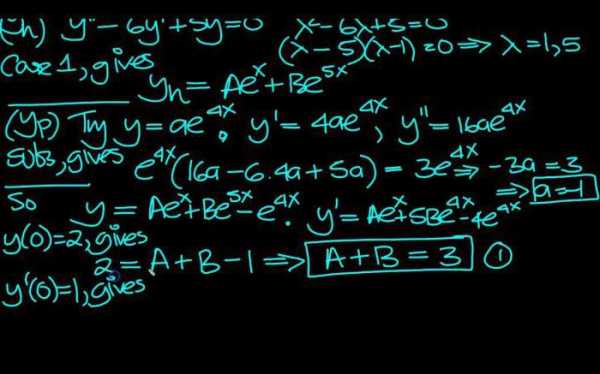 (yh) y"-6y'+5y=0 λ²-6λ+5=0
(λ-5)(λ-1)=0⇒ λ=1,5
Case 1, gives
yh = Ae^x+Be^5x
(yp) Try y=ae^4x. y'=4ae^4x, y"=16ae^4x
subs, gives e^4x(16a-6.4a+5a) = 3e^4x ⇒ -3a=3
⇒ a=-1
So y = Ae^x+Be^5x-e^4x. y'=Ae^x+5Be^5x-4e^4x
y(0)=2, gives
2 = A+B-1 ⇒ A+B=3 ①
y'(0)=1, gives